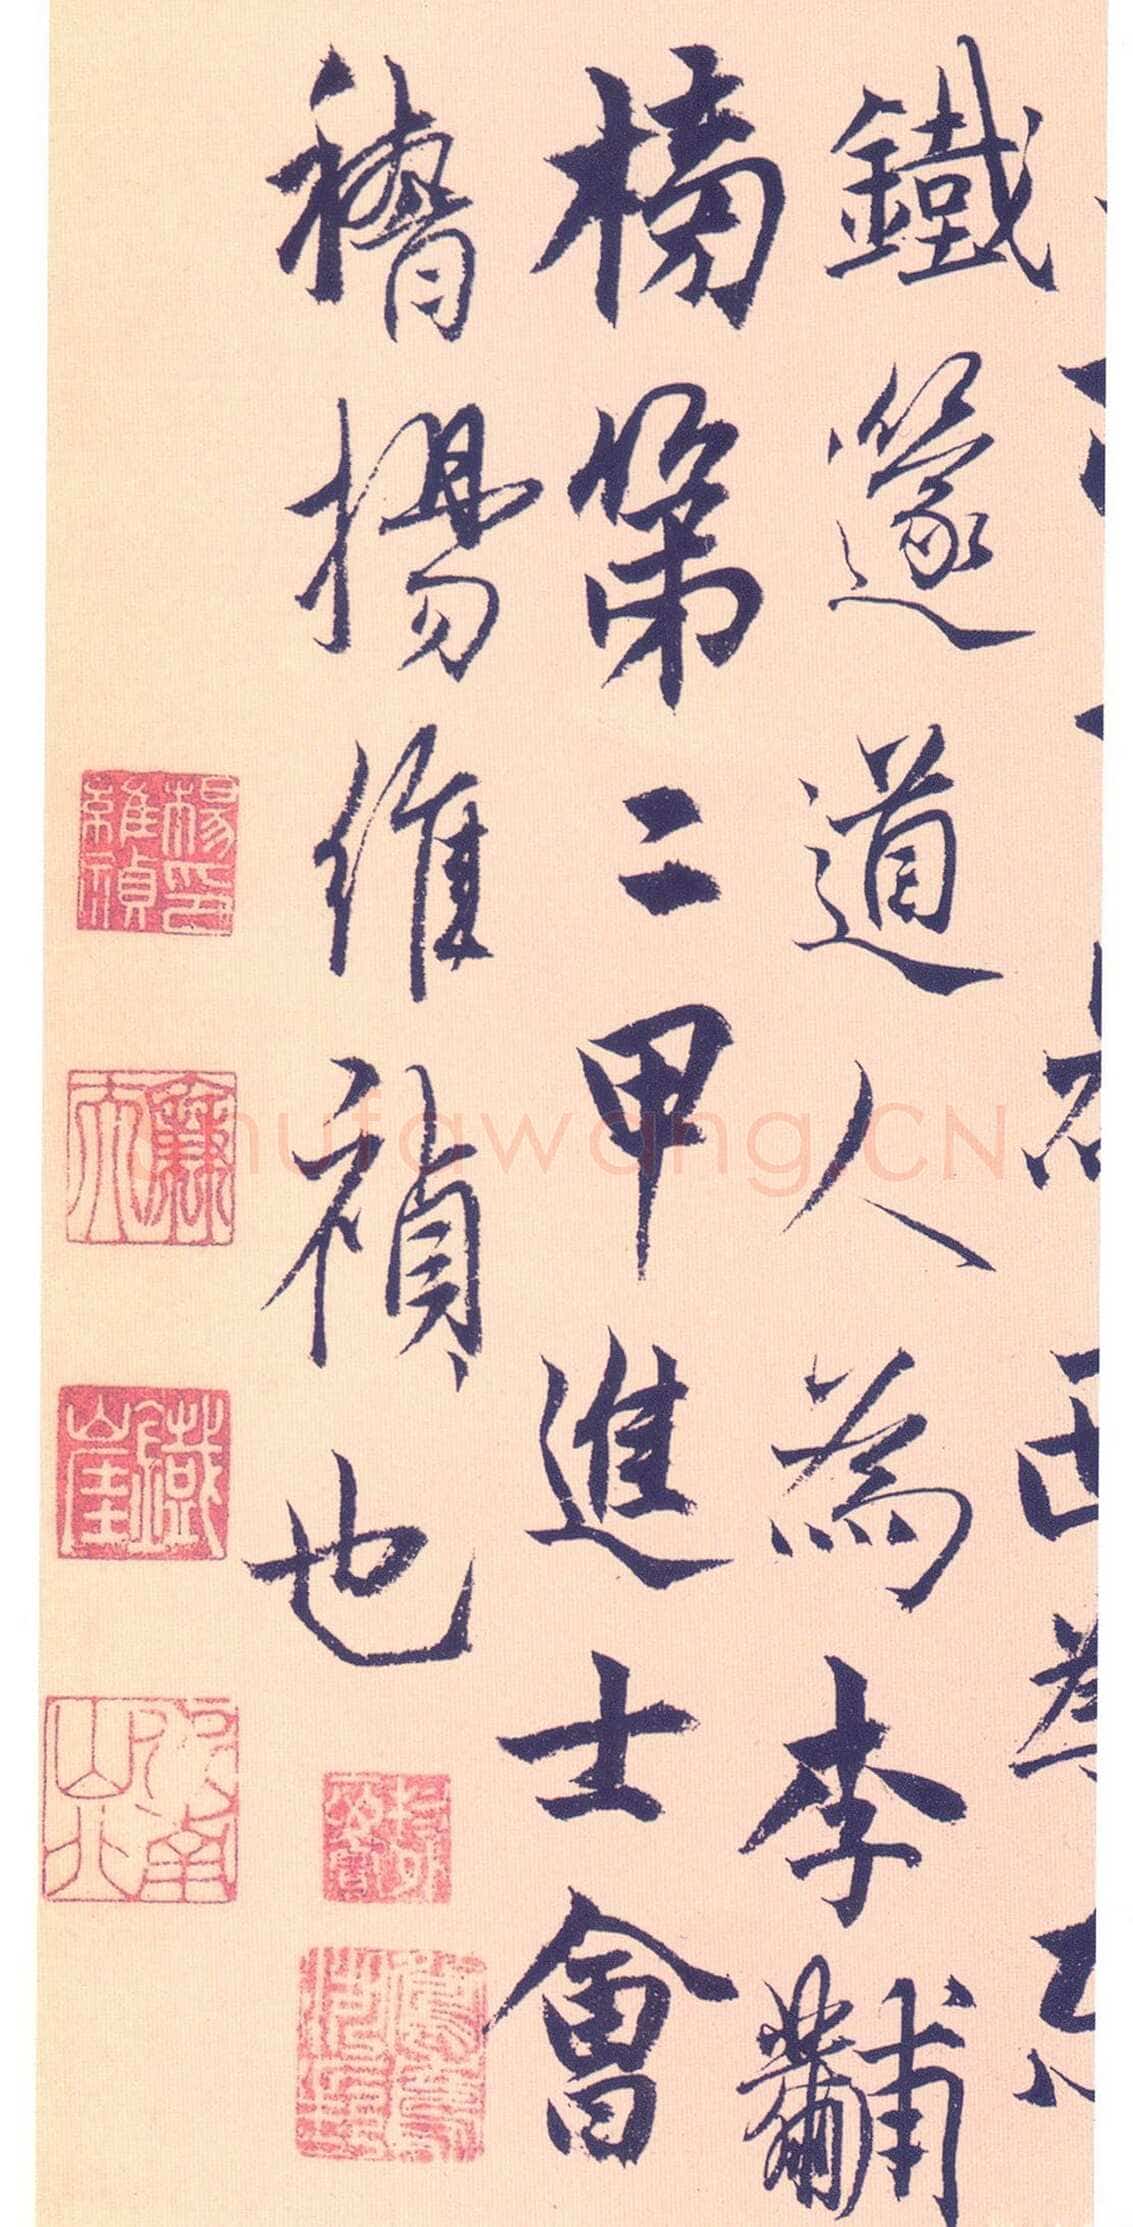 鐵篴道人為李黼
榜第二甲進士會
稽楊維禎也
楊維禎印
廉夫
鐵崖
shufawang.CN